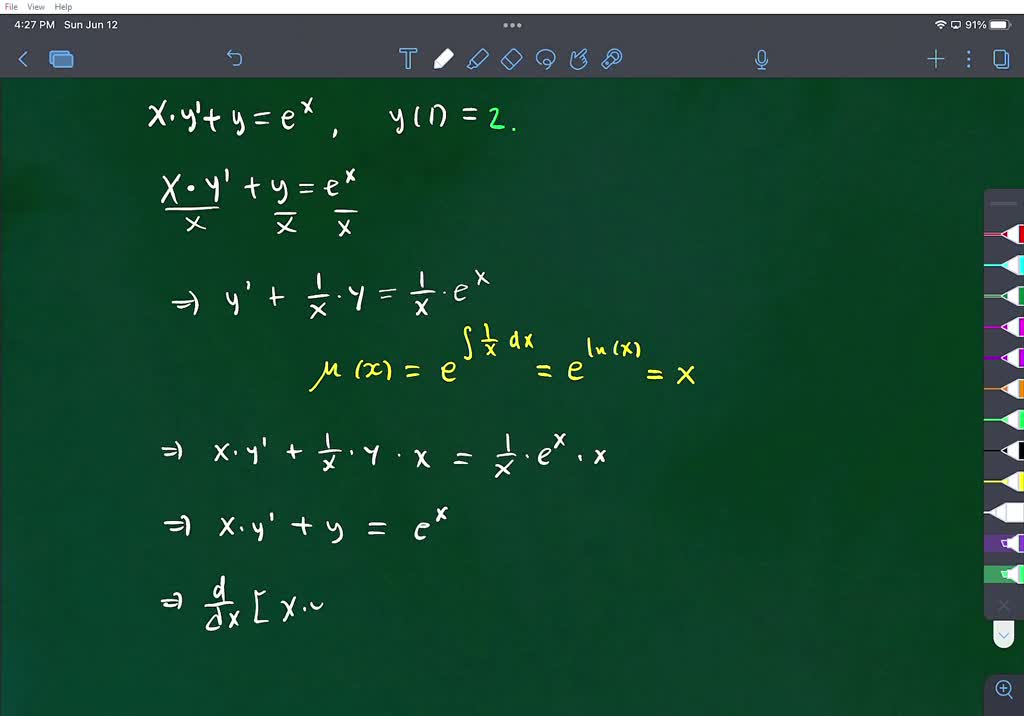 File View Help
4:27 PM Sun Jun 12
91%
x·y' + y = e^x, y(1) = 2.
x·y'/x + y/x = e^x/x
⇒ y' + 1/x · y = 1/x · e^x
μ(x) = e^{∫ 1/x dx} = e^{ln(x)} = x
⇒ x·y' + 1/x · y · x = 1/x · e^x · x
⇒ x·y' + y = e^x
⇒ d/dx [ x·